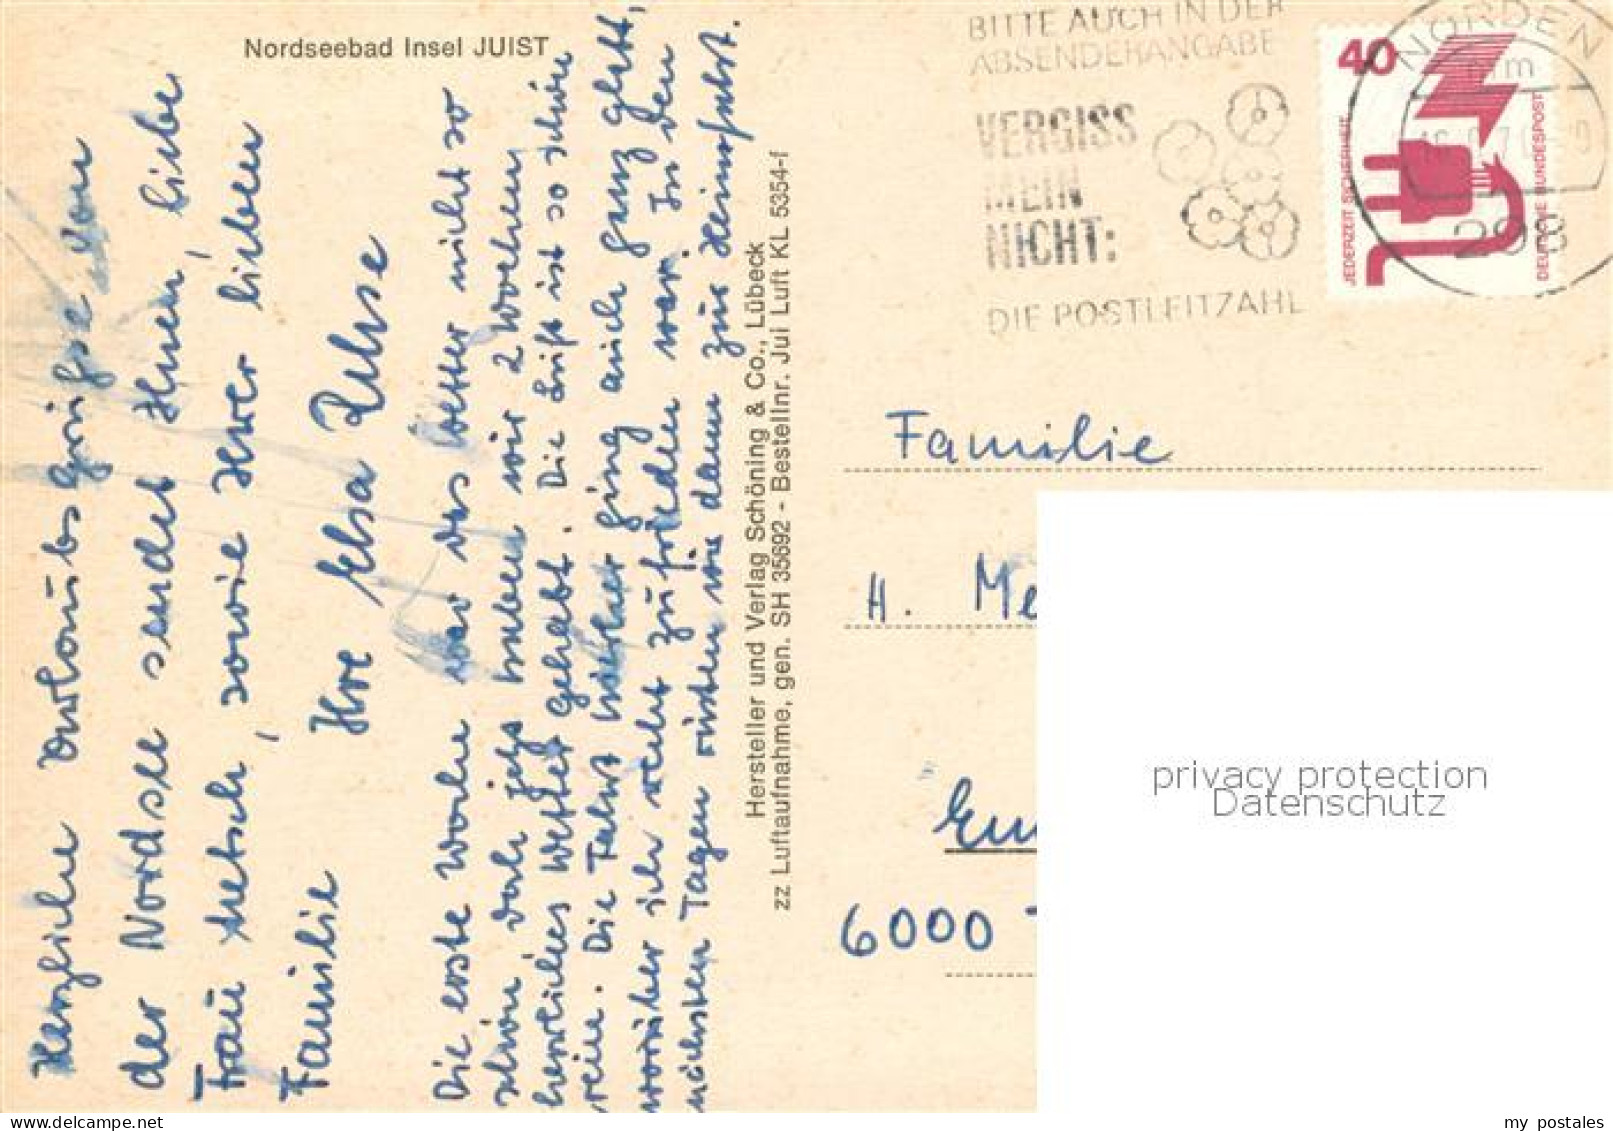 Nordseebad Insel JUIST
Herzliche Urlaubsgrüsse von
der Nordsee sendet Ihnen, liebe
Frau, sowie Ihrer lieben
Familie,
Ihre Elsa
Die erste Woche war das Wetter nicht so
schön doch jetzt haben wir 2 Wochen
herrliches Wetter gehabt. Die Luft ist so schön
rein. Die Fahrt hierher ging auch ganz glatt,
worüber ich recht zufrieden war. In den
nächsten Tagen rüsten wir dann zur Heimfahrt.
Hersteller und Verlag Schöning & Co., Lübeck
zz Luftaufnahme, gen. SH 35692 - Bestellnr. Jui Luft KL 5354-f
BITTE AUCH IN DER
ABSENDERANGABE
VERGISS
MEIN
NICHT:
DIE POSTLEITZAHL
40
JEDERZEIT SICHERHEIT
DEUTSCHE BUNDESPOST
NORDEN
298
Familie
H. Me
6000
privacy protection
Datenschutz
my postales